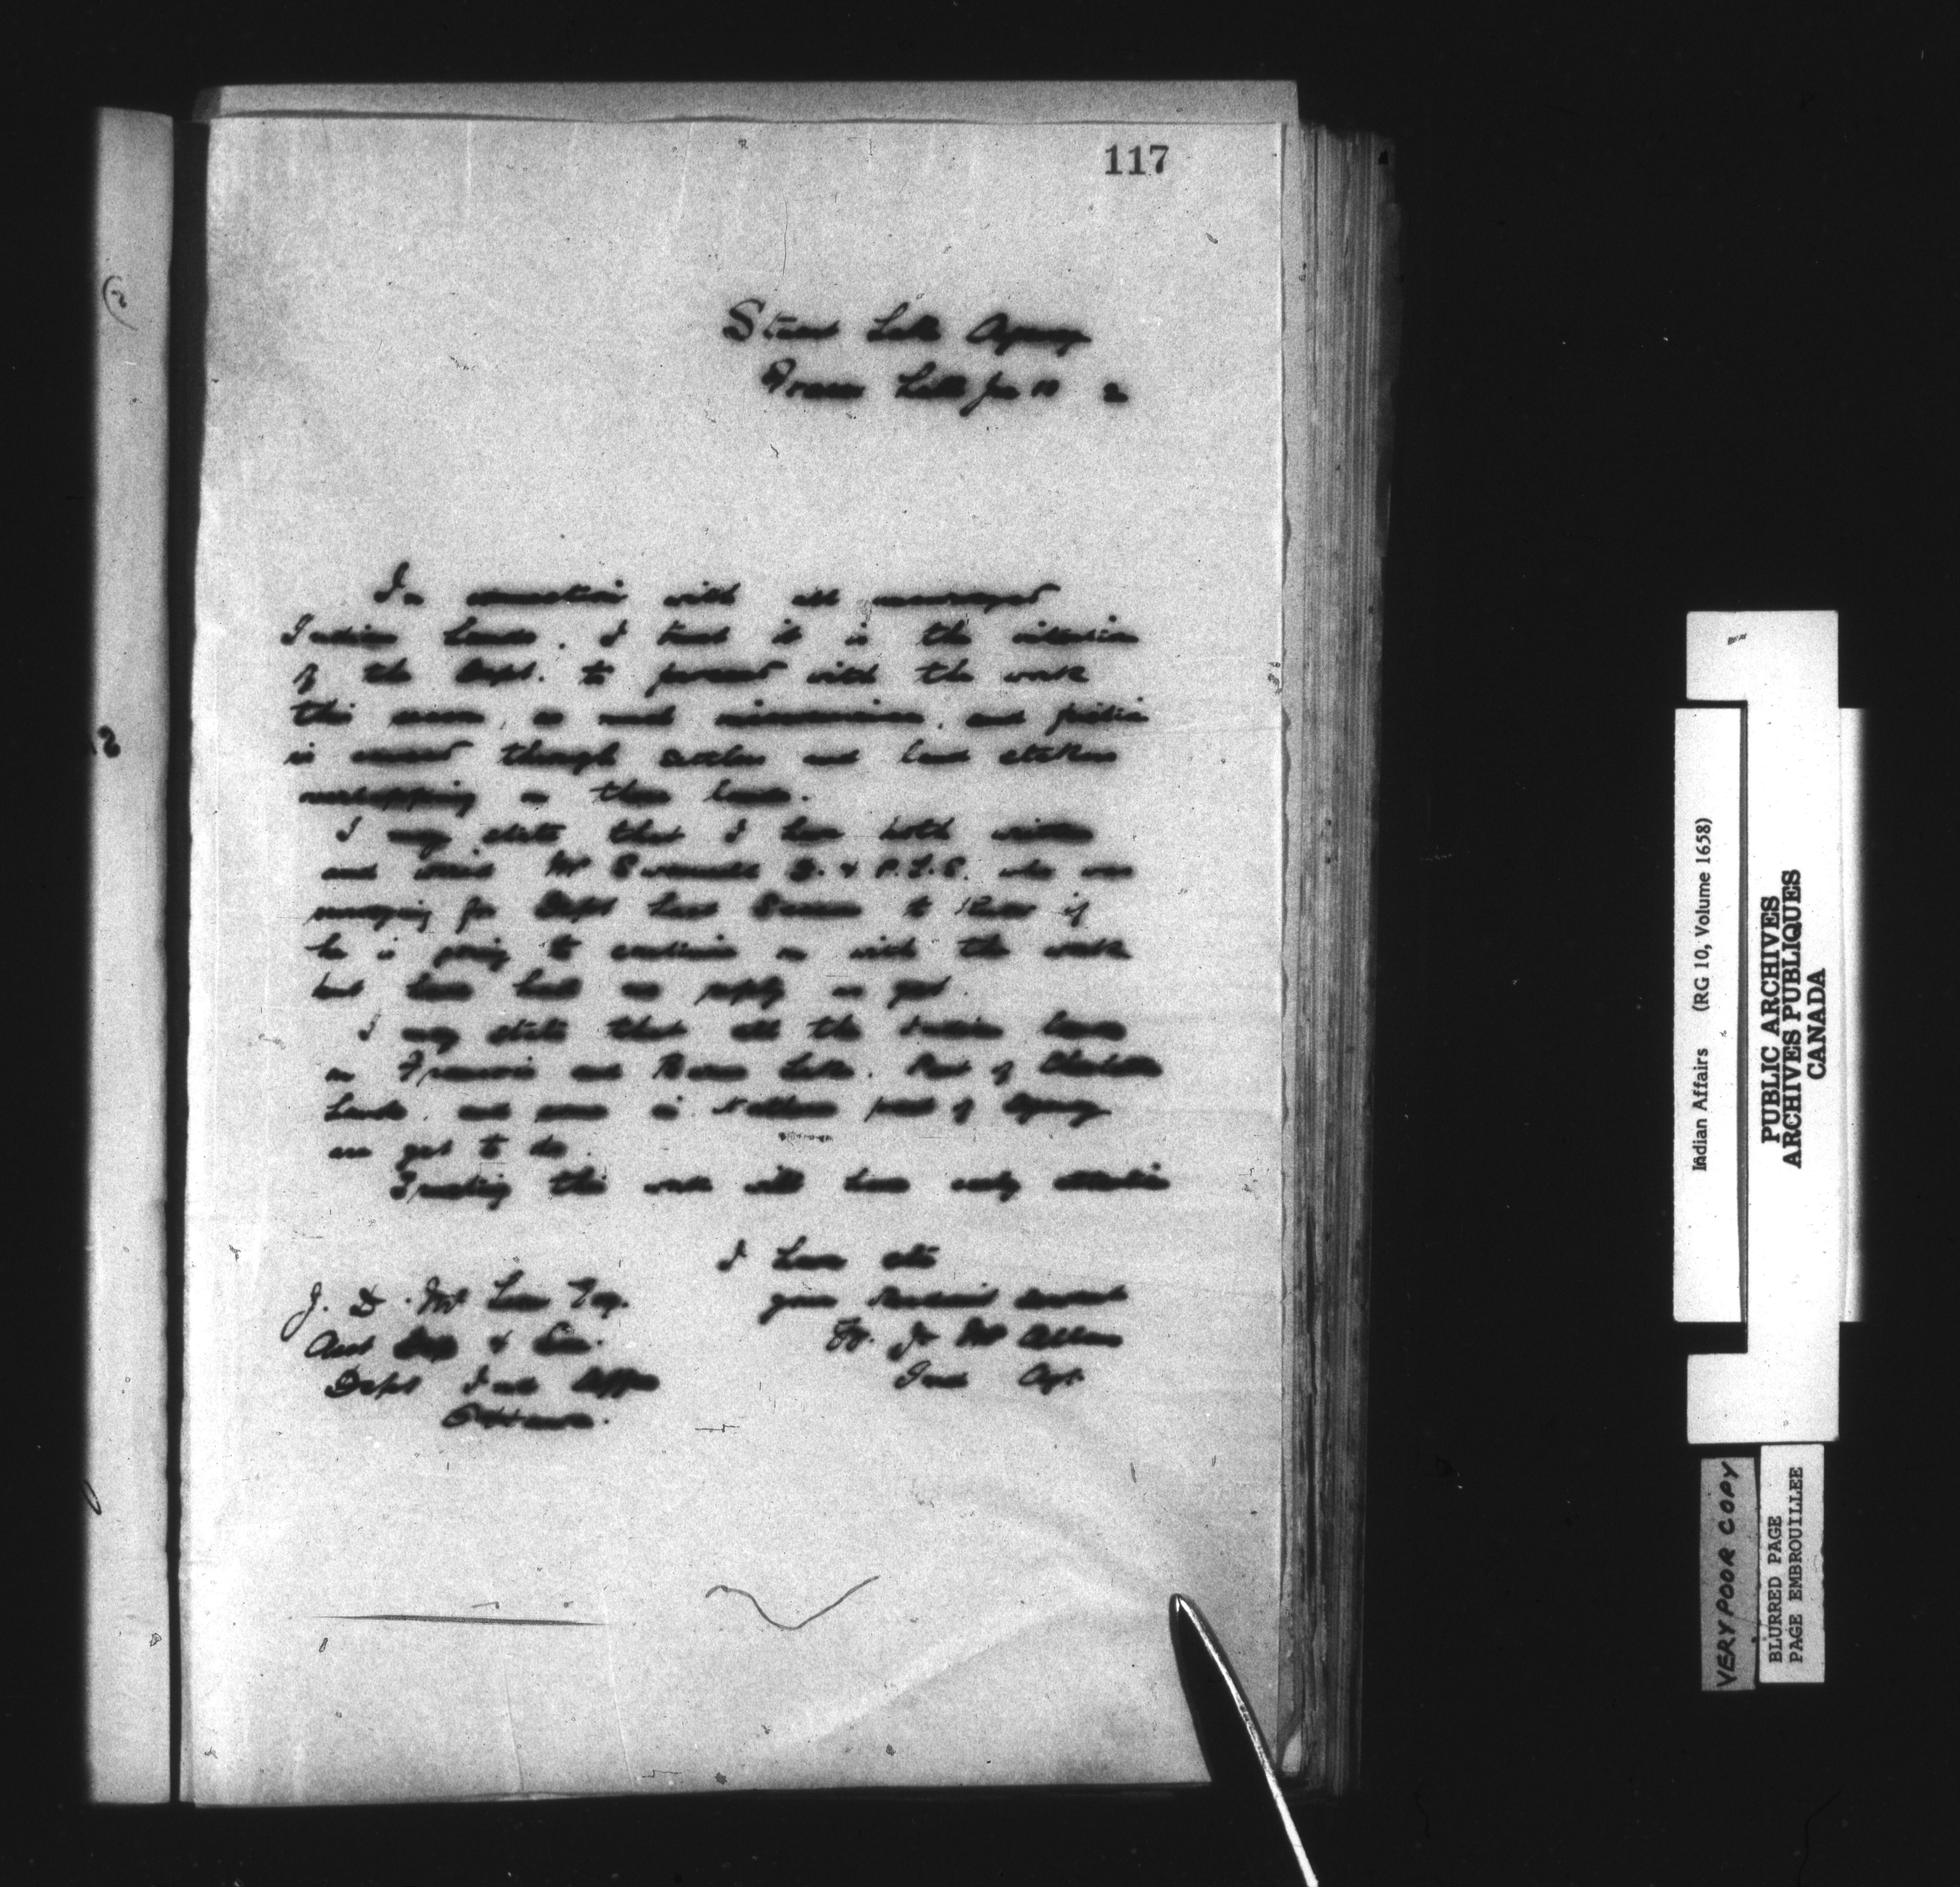 117
Stuart Lake Agency
Fraser Lake Jan 10
In connection with all unsurveyed
Indian Lands. I trust it is the intention
of the Dept. to proceed with the work
this season, as much and friction
is caused through settlers and land stakers
overlapping on these lands.
I may state that I have both written
and wired Mr D. & P.L.S. who was
surveying for Dept last Season to know if
he is going to continue on with the work
but have had no reply as yet.
I may state that all the Indian lands
on Francois and Lake. Part of
Lands, and some in Northern part of Agency
are yet to do.
Trusting this work will have early attention
I have etc
your obedient servant
W. J. Mc Allan
Ind Agt
J. D. Mc Lean Esq.
Asst Dep & Sec.
Dept Ind Affrs
Ottawa.
Indian Affairs (RG 10, Volume 1658)
PUBLIC ARCHIVES
ARCHIVES PUBLIQUES
CANADA
VERY POOR COPY
BLURRED PAGE
PAGE EMBROUILLEE